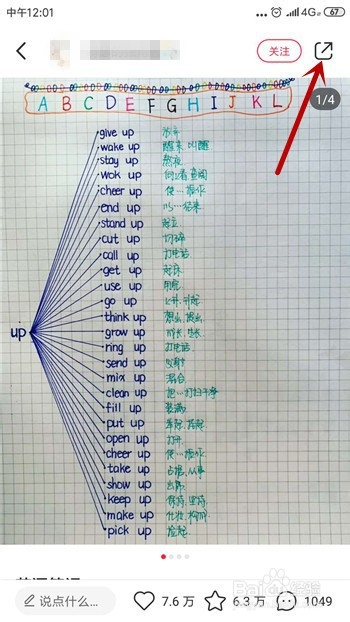 中午12:01
4G 67
关注
1/4
A B C D E F G H I J K L
up
give up 放弃
wake up 醒来 叫醒
stay up 熬夜
wok up
cheer up 使…振作
end up 以…结束
stand up 起立
cut up 切碎
call up 打电话
get up 起床
use up 用完
go up 上升
think up 想出, 提出
grow up 成长
ring up 打电话
send up 发射
mix up 混合
clean up 把…打扫干净
fill up 装满
put up
open up 打开
cheer up 使…振作
take up 占据, 从事
show up 出席
keep up 保持, 坚持
make up 化妆, 构成
pick up 捡起
说点什么...
7.6 万
6.3 万
1049
Baidu 经验